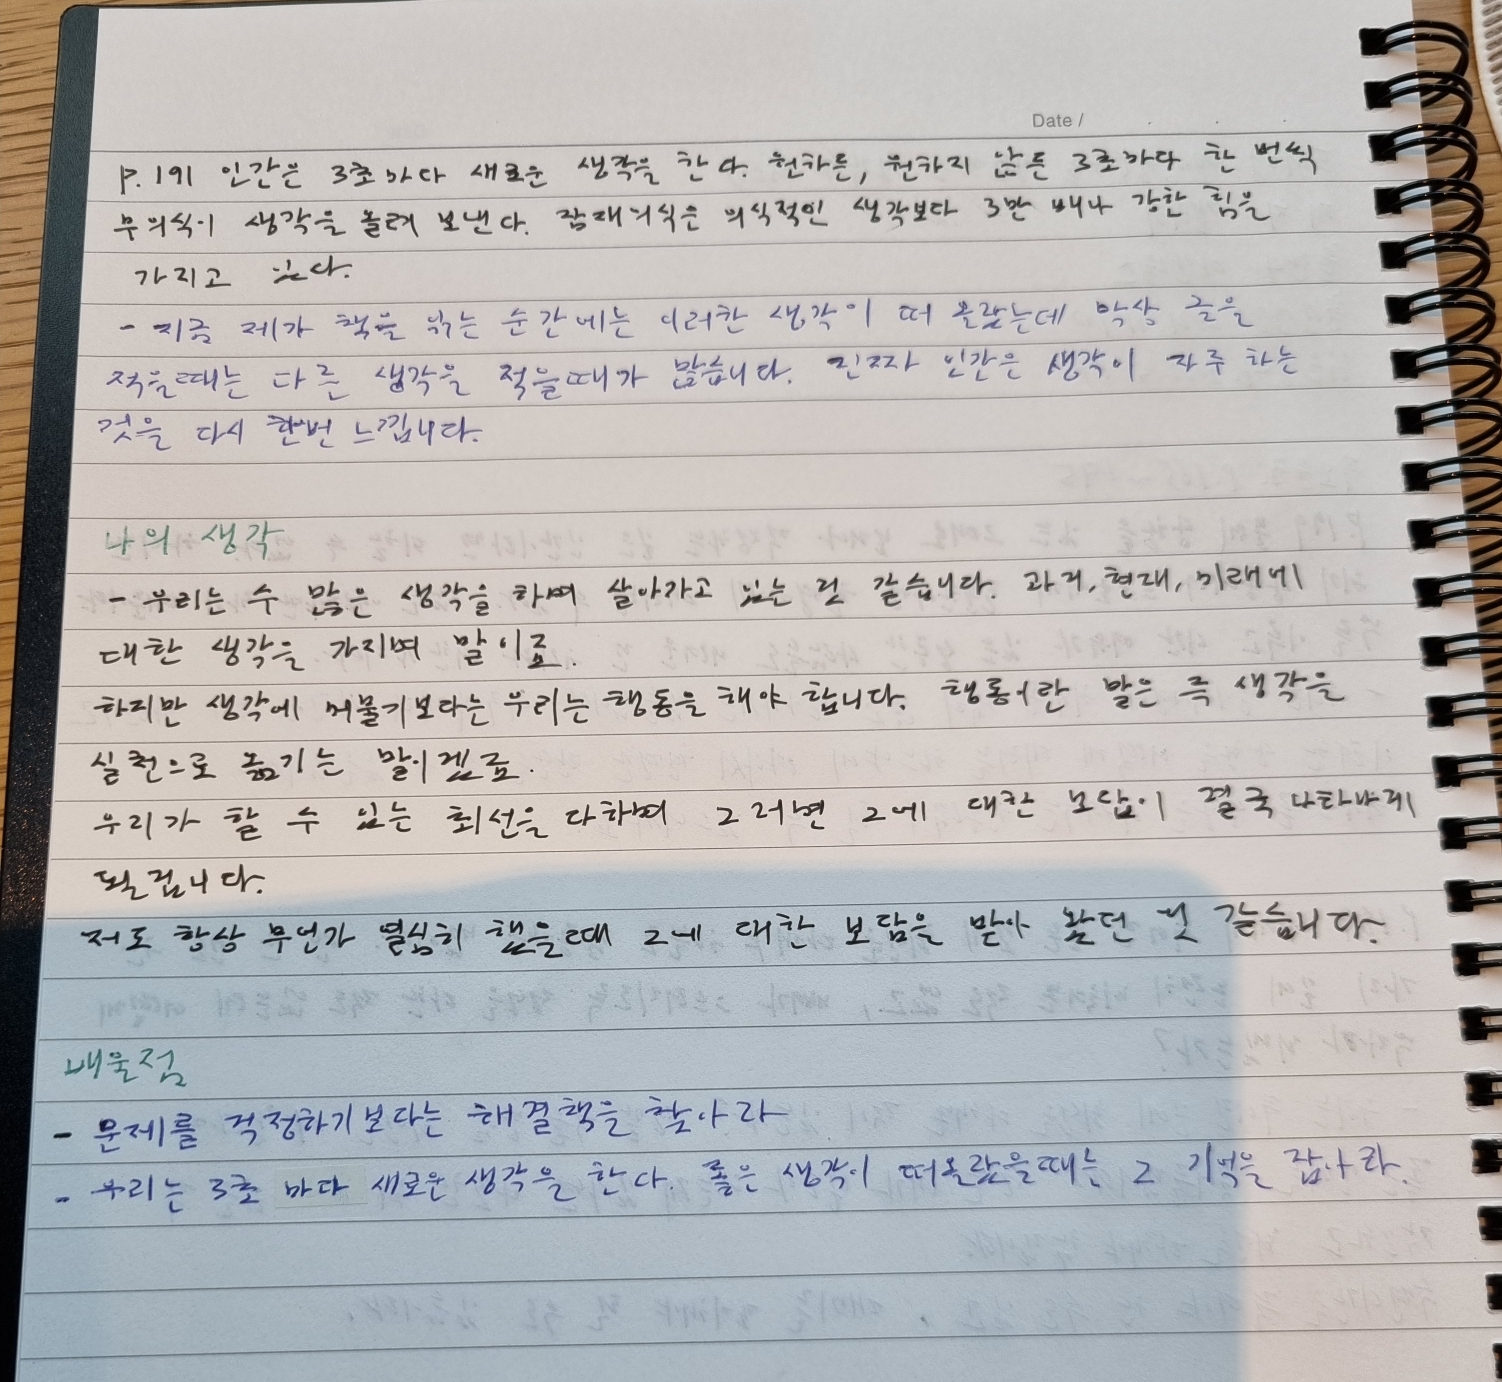 Date /
p. 191 인간은 3초마다 새로운 생각을 한다. 원하든, 원하지 않든 3초마다 한 번씩
무의식이 생각을 올려 보낸다. 잠재의식은 의식적인 생각보다 3만 배나 강한 힘을
가지고 있다.
- 지금 제가 책을 읽는 순간에는 이러한 생각이 떠 올랐는데 막상 글을
적을때는 다른 생각을 적을때가 많습니다. 진짜 인간은 생각이 자주 하는
것을 다시 한번 느낍니다.
나의 생각
- 우리는 수 많은 생각을 하며 살아가고 있는 것 같습니다. 과거, 현재, 미래에
대한 생각을 가지며 말이죠.
하지만 생각에 머물기보다는 우리는 행동을 해야 합니다. 행동이란 말은 즉 생각을
실천으로 옮기는 말이겠죠.
우리가 할 수 있는 최선을 다하며 그러면 그에 대한 보답이 결국 나타나게
될겁니다.
저도 항상 무언가 열심히 했을때 그에 대한 보답을 받아 왔던 것 같습니다.
배울점
- 문제를 걱정하기보다는 해결책을 찾아라
- 우리는 3초 마다 새로운 생각을 한다. 좋은 생각이 떠올랐을때는 그 기억을 잡아라.